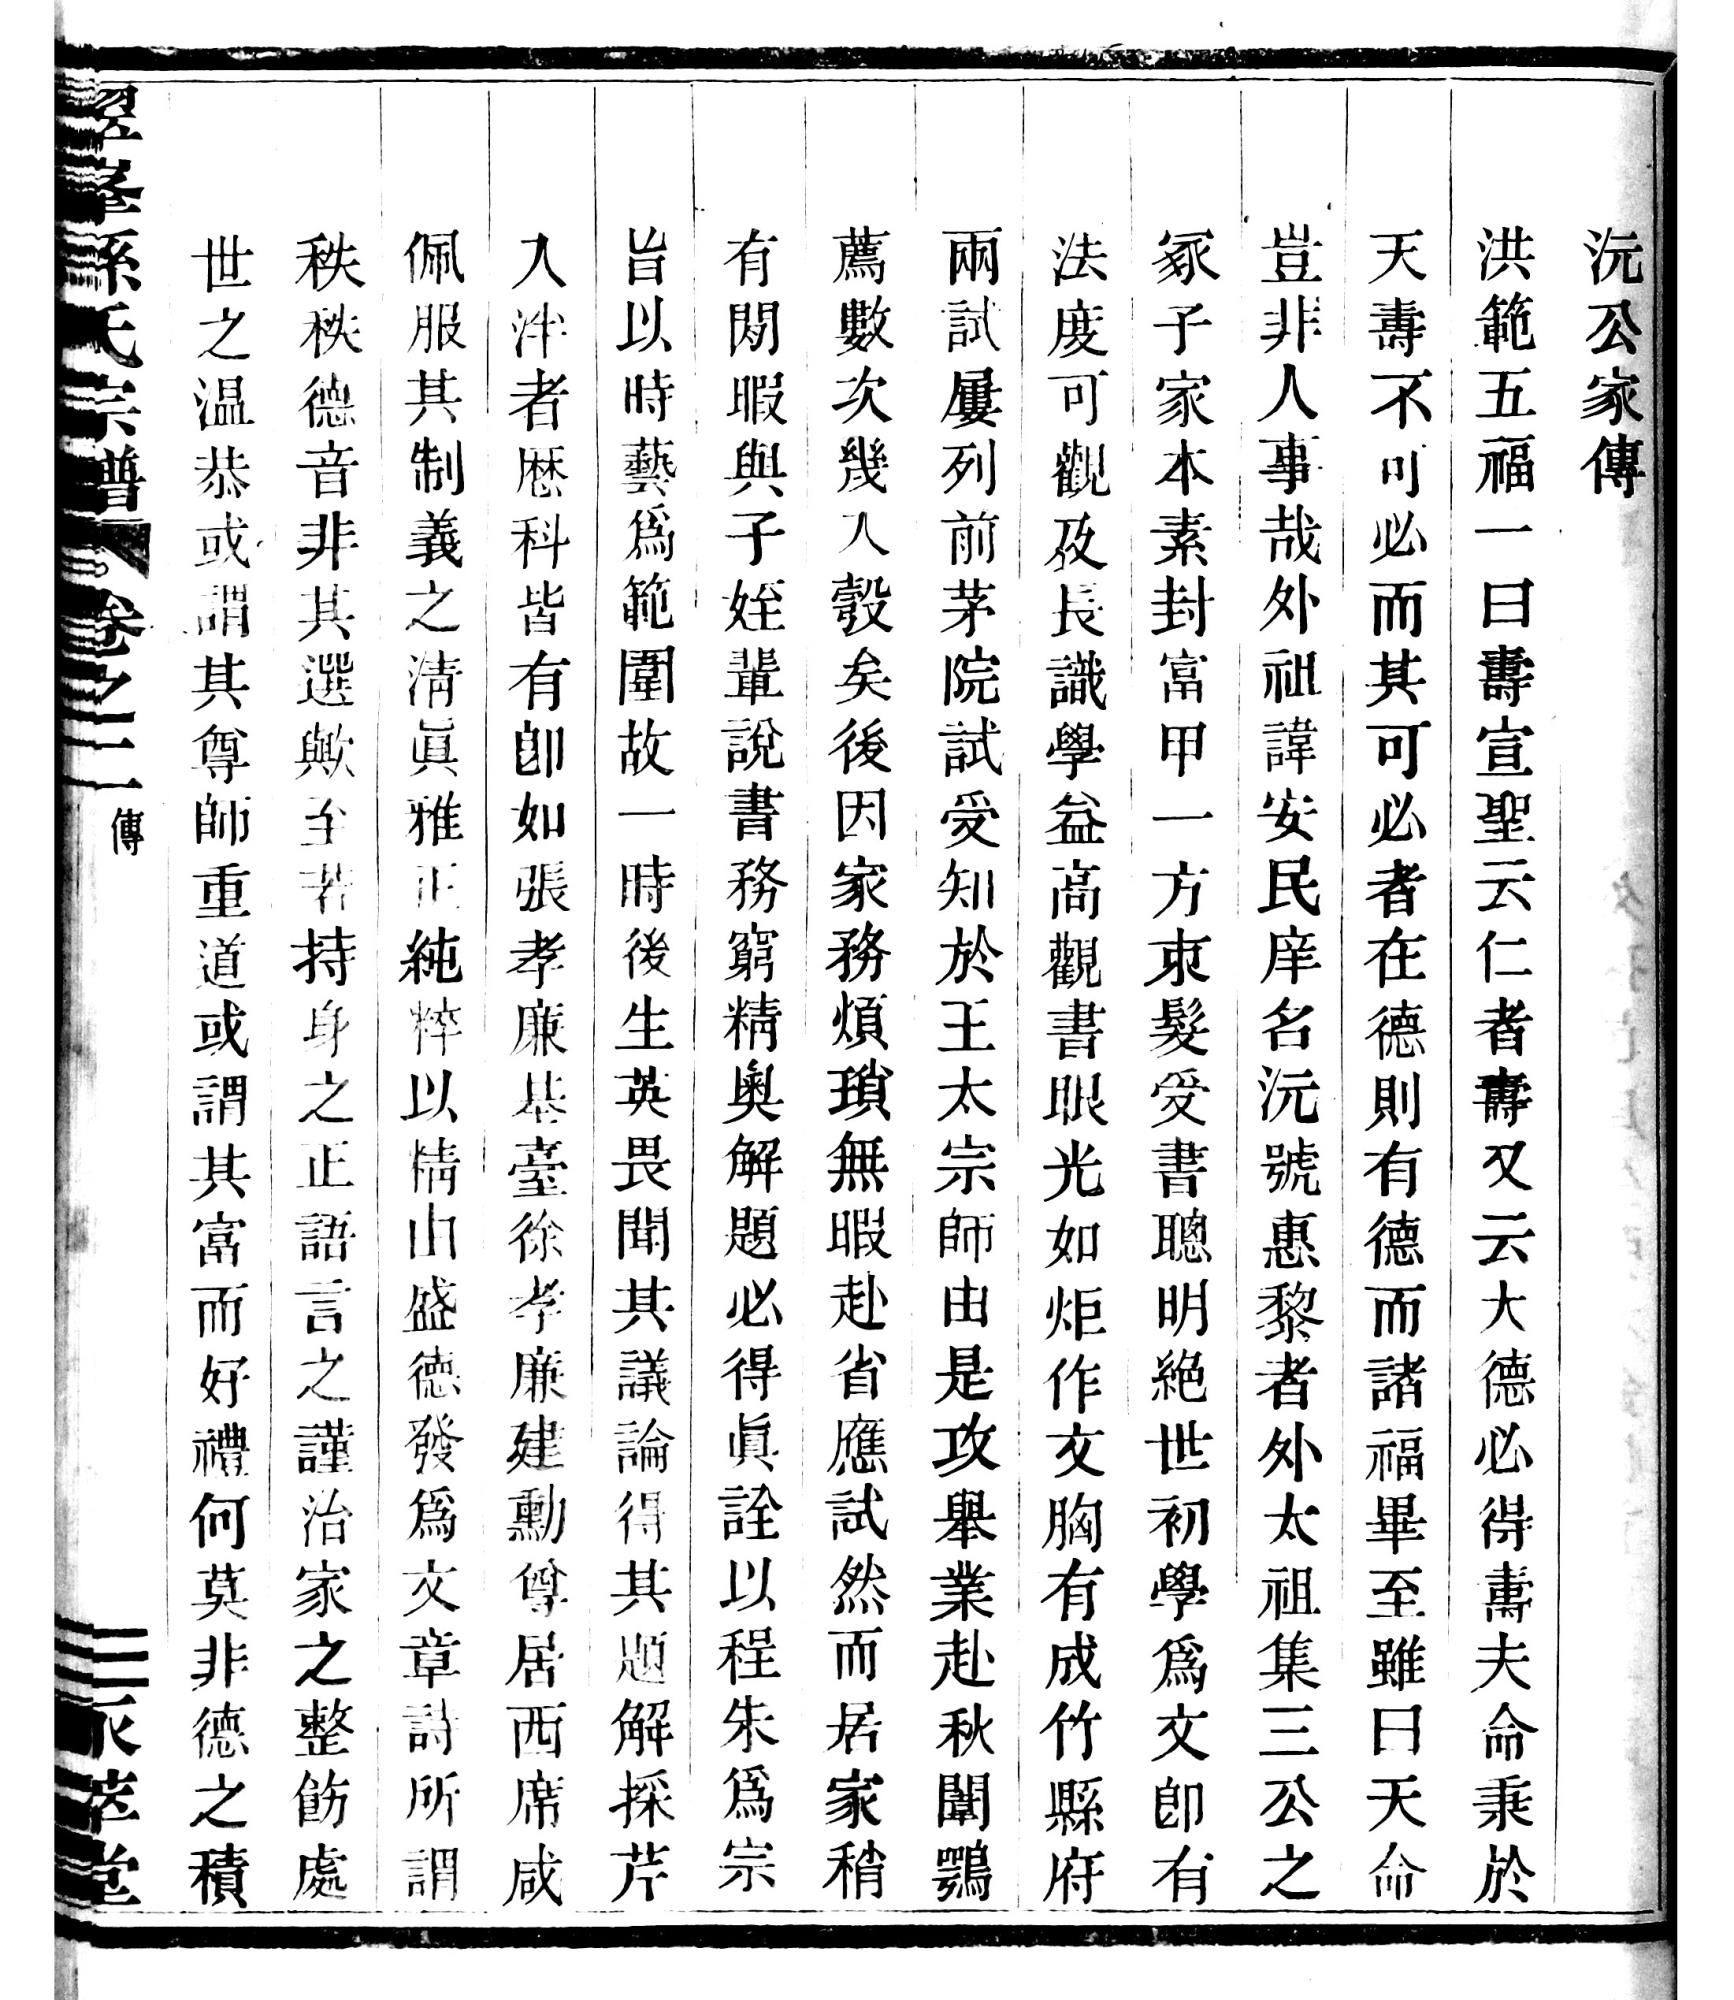 沅公家傳
洪範五福一曰壽宣聖云仁者壽又云大德必得壽夫命秉於
天壽不可必而其可必者在德則有德而諸福畢至雖曰天命
豈非人事哉外祖諱安民庠名沅號惠黎者外太祖集三公之
冢子家本素封富甲一方束髮受書聰明絶世初學爲文卽有
法度可觀及長識學益高觀書眼光如炬作文胸有成竹縣府
兩試屢列前茅院試受知於王太宗師由是攻舉業赴秋闈鶚
薦數次幾入彀矣後因家務煩瑣無暇赴省應試然而居家稍
有閒暇與子姪輩說書務窮精奧解題必得眞詮以程朱爲宗
旨以時藝爲範圍故一時後生英畏聞其議論得其題解採芹
入泮者歴科皆有卽如張孝廉基臺徐孝廉建勳尊居西席咸
佩服其制義之淸眞雅正純粹以情山盛德發爲文章詩所謂
秩秩德音非其選歟至若持身之正語言之謹治家之整飭處
世之温恭或謂其尊師重道或謂其富而好禮何莫非德之積
翠峯孫氏宗譜 卷之二 傳 三 永萃堂